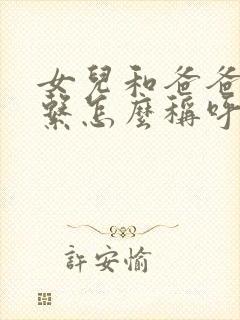 女兒和爸爸
繫怎麼稱呼
許安愉